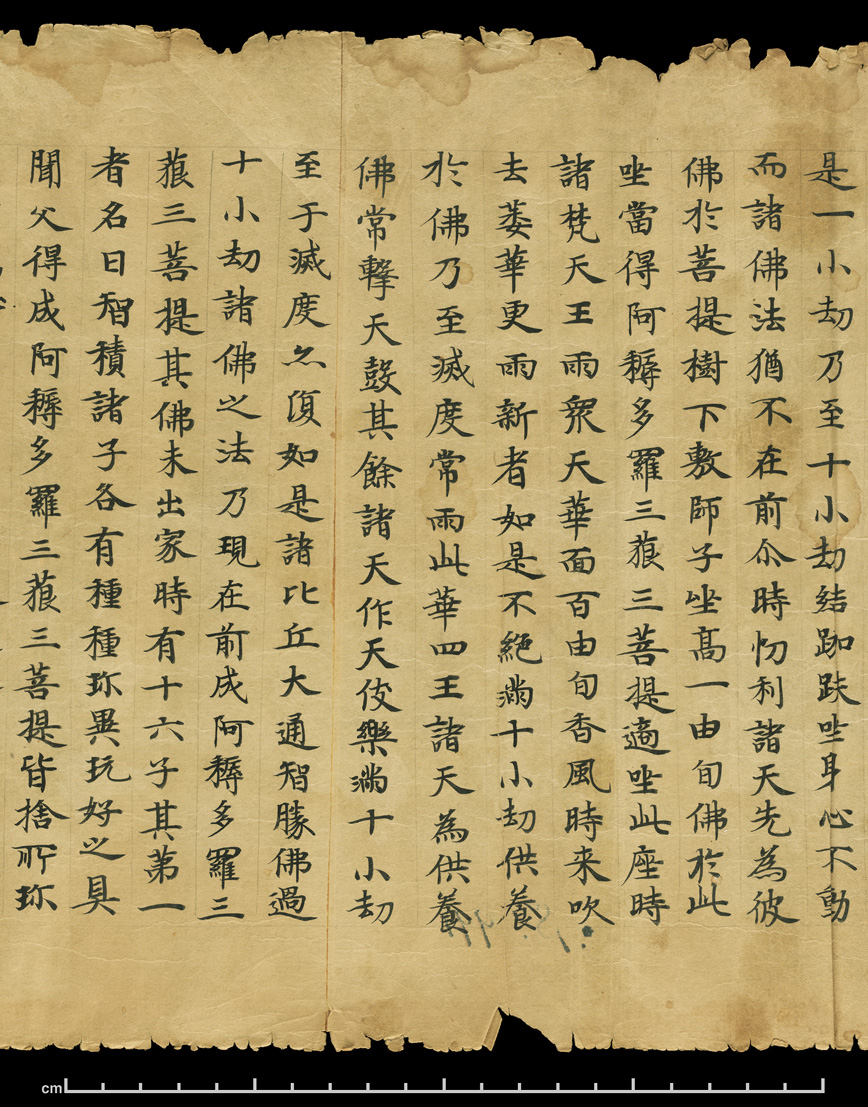 是一小劫乃至十小劫結跏趺坐身心不動
而諸佛法猶不在前尒時忉利諸天先為彼
佛於菩提樹下敷師子坐高一由旬佛於此
坐當得阿耨多羅三藐三菩提適坐此座時
諸梵天王雨衆天華面百由旬香風時来吹
去萎華更雨新者如是不絕滿十小劫供養
於佛乃至滅度常雨此華四王諸天為供養
佛常擊天鼓其餘諸天作天伎樂滿十小劫
至于滅度亦復如是諸比丘大通智勝佛過
十小劫諸佛之法乃現在前成阿耨多羅三
藐三菩提其佛未出家時有十六子其第一
者名曰智積諸子各有種種珎異玩好之具
聞父得成阿耨多羅三藐三菩提皆捨所珎
cm